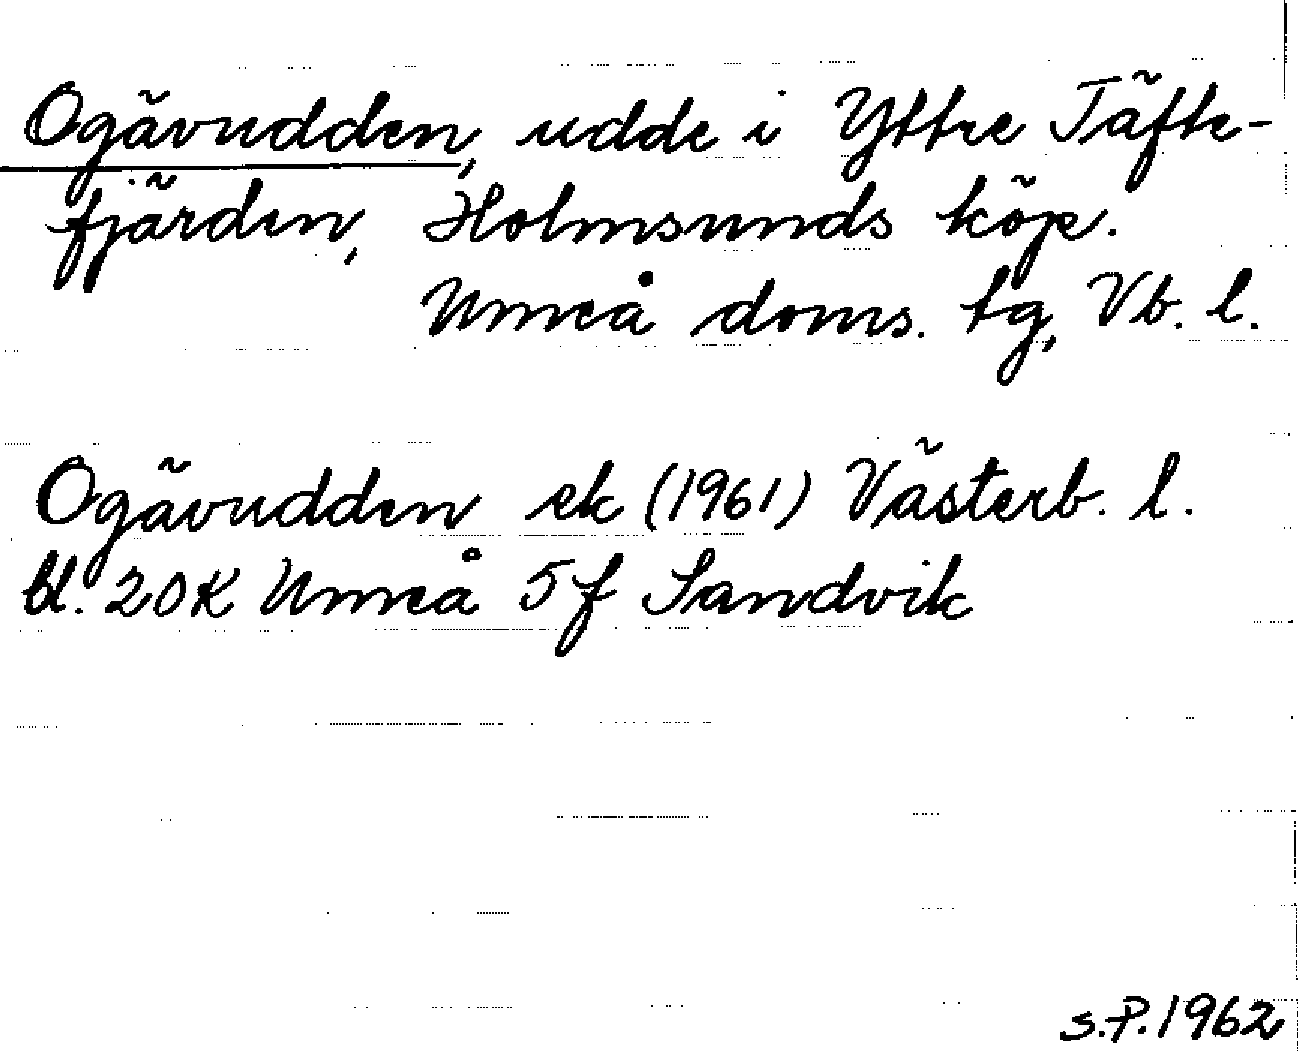 Ogävudden, udde i Yttre Täfte-
fjärden, Holmsunds köp.
Umeå doms. tg, Vb. l.
Ogävudden ek (1961) Västerb. l.
bl. 20K Umeå 5f Sandvik
S.P. 1962